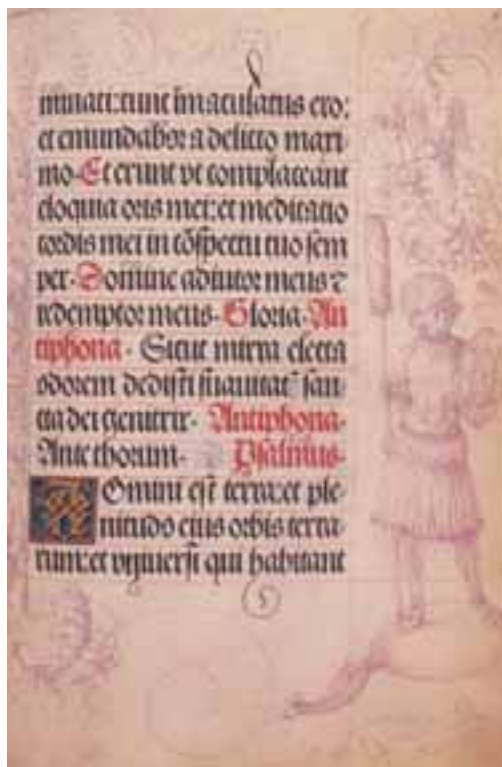 minati: tunc imaculatus ero:
et emundabor a delicto maxi
mo. Et erunt vt complaceant
eloquia oris mei: et meditatio
cordis mei in cōspectu tuo sem
per. Domine adiutor meus ⁊
redemptor meus. Gloria. An
tiphona. Sicut mirra electa
odorem dedisti suauitatis san
cta dei genitrix. Antiphona.
Ante thorum. Psalmus.
Domini est terra: et ple
nitudo eius orbis terra
rum: et vniuersi qui habitant